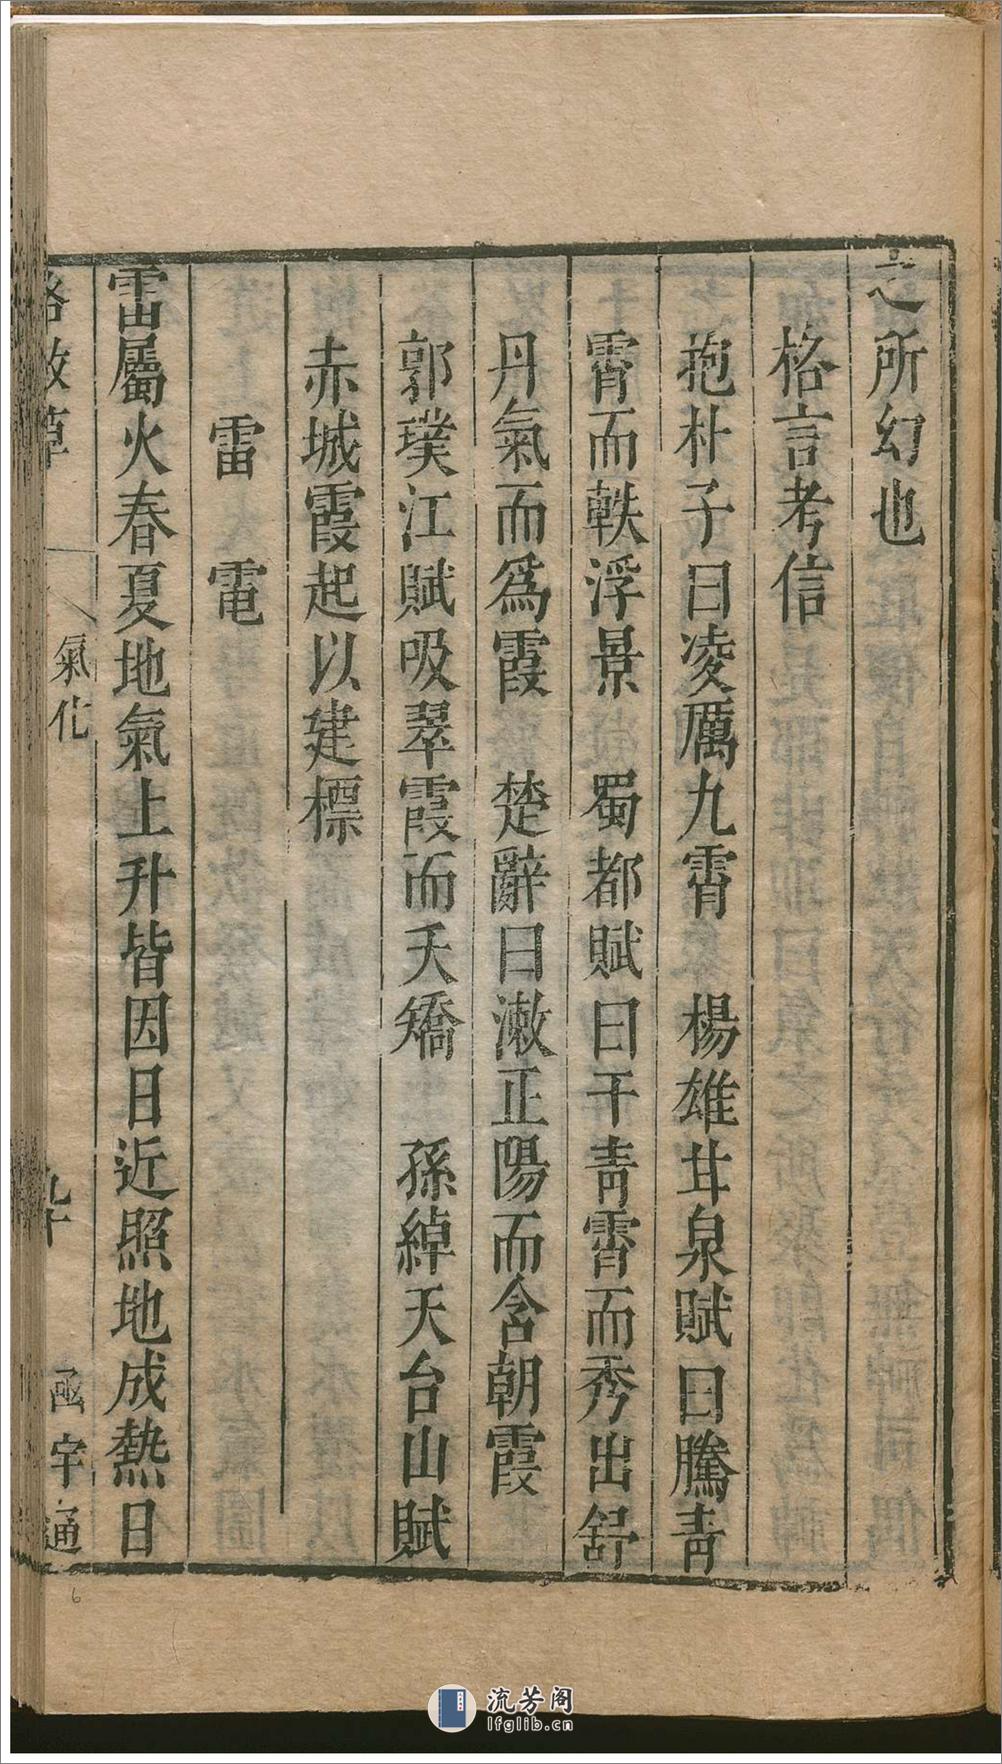 之所幻也
格言考信
抱朴子曰凌厲九霄　楊雄甘泉賦曰騰青
霄而軼浮景　蜀都賦曰干青霄而秀出舒
丹氣而爲霞　楚辭曰漱正陽而含朝霞
郭璞江賦吸翠霞而夭矯　孫綽天台山賦
赤城霞起以建標
雷　電
雷屬火春夏地氣上升皆因日近照地成熱日
格致草
氣化
九十
函宇通
6
流芳阁
lfglib.cn